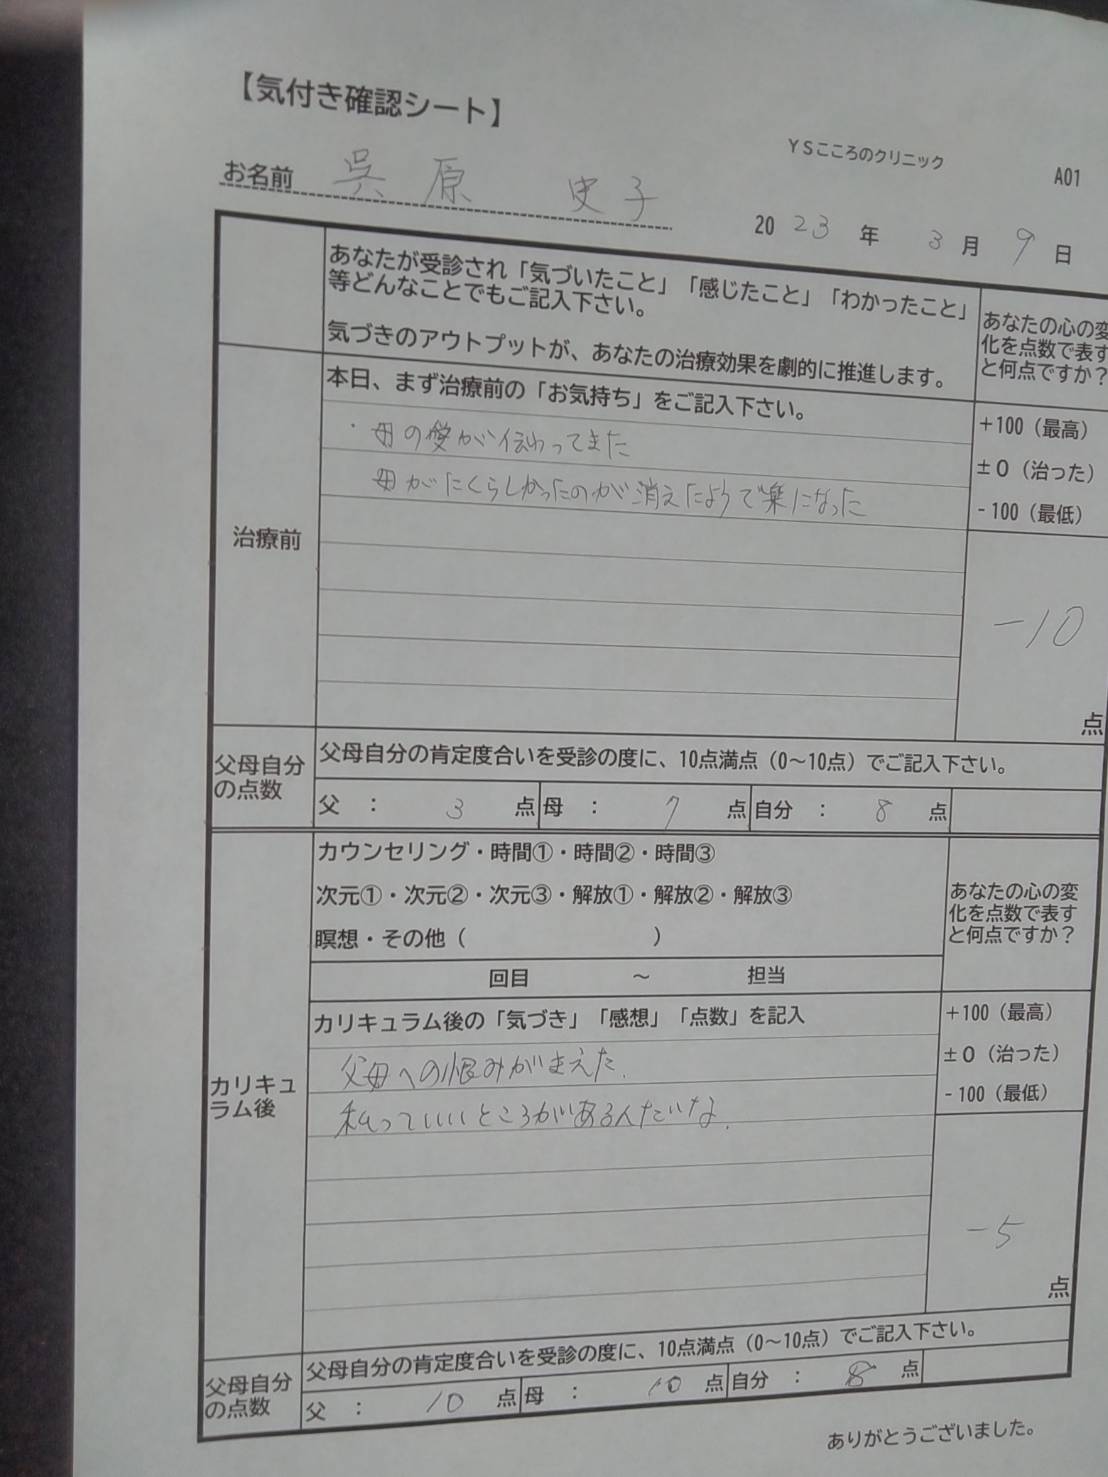 【気付き確認シート】
YSこころのクリニック
A01
お名前 呉原 史子
2023年 3月 9日
あなたが受診され「気づいたこと」「感じたこと」「わかったこと」
等どんなことでもご記入下さい。
気づきのアウトプットが、あなたの治療効果を劇的に推進します。
あなたの心の変
化を点数で表す
と何点ですか？
治療前
本日、まず治療前の「お気持ち」をご記入下さい。
・母の愛が伝わってきた
母がにくらしかったのが消えたようで楽になった
+100（最高）
±0（治った）
-100（最低）
-10
点
父母自分
の点数
父母自分の肯定度合いを受診の度に、10点満点（0～10点）でご記入下さい。
父 ： 3 点 母 ： 7 点 自分 ： 8 点
カリキュ
ラム後
カウンセリング・時間①・時間②・時間③
次元①・次元②・次元③・解放①・解放②・解放③
瞑想・その他（ ）
回目 ～ 担当
あなたの心の変
化を点数で表す
と何点ですか？
カリキュラム後の「気づき」「感想」「点数」を記入
父母への恨みがきえた.
私っていいところがある人だいな.
+100（最高）
±0（治った）
-100（最低）
-5
点
父母自分
の点数
父母自分の肯定度合いを受診の度に、10点満点（0～10点）でご記入下さい。
父 ： 10 点 母 ： 10 点 自分 ： 8 点
ありがとうございました。